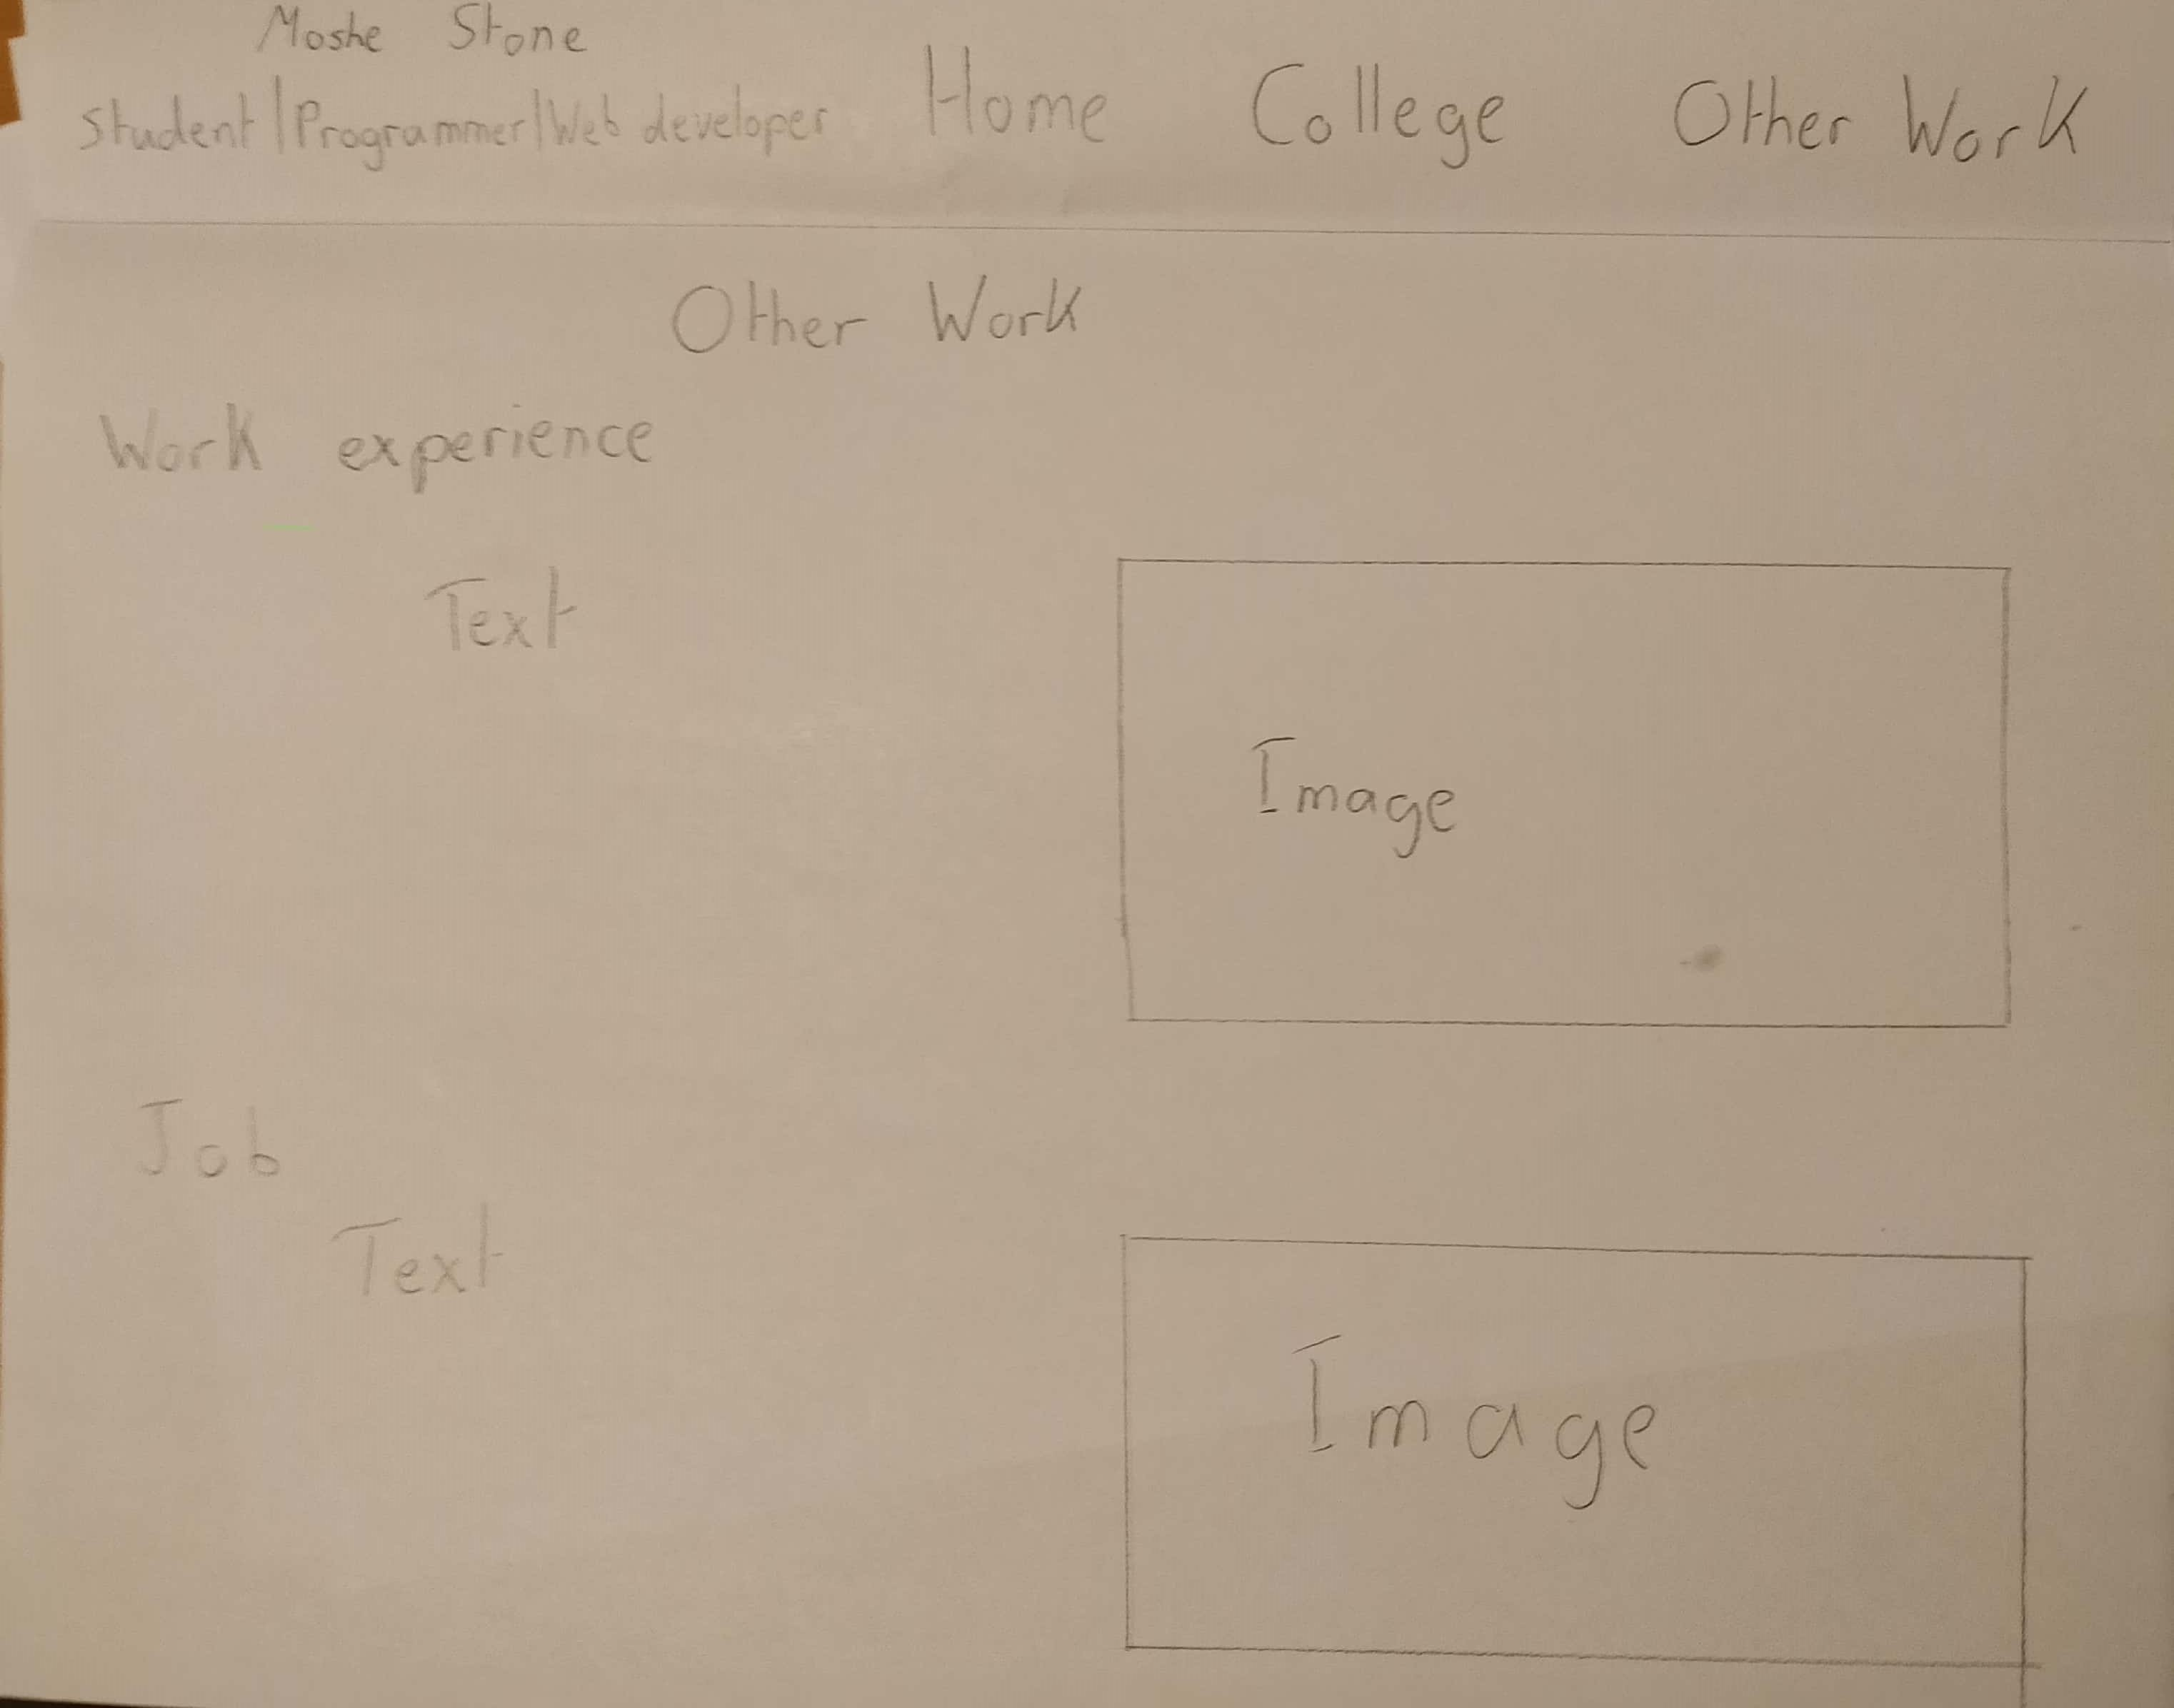 Moshe Stone
Student|Programmer|Web developer Home College Other Work
Other Work
Work experience
Text
Image
Job
Text
Image